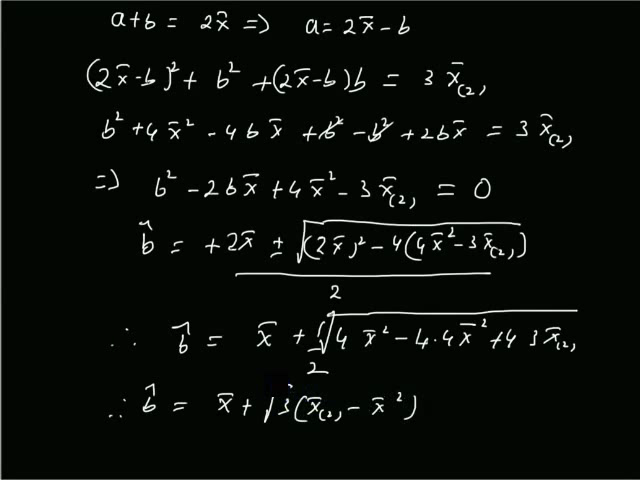 a+b = 2x̄ => a = 2x̄ - b
(2x̄-b)² + b² + (2x̄-b)b = 3 x̄₍₂₎
b² + 4x̄² - 4bx̄ + b² - b² + 2bx̄ = 3 x̄₍₂₎
=> b² - 2bx̄ + 4x̄² - 3x̄₍₂₎ = 0
b̂ = +2x̄ ± √(2x̄)² - 4(4x̄² - 3x̄₍₂₎)
2
∴ b̂ = x̄ + 1/2 √4 x̄² - 4·4x̄² + 4 3x̄₍₂₎
∴ b̂ = x̄ + √3(x̄₍₂₎ - x̄²)